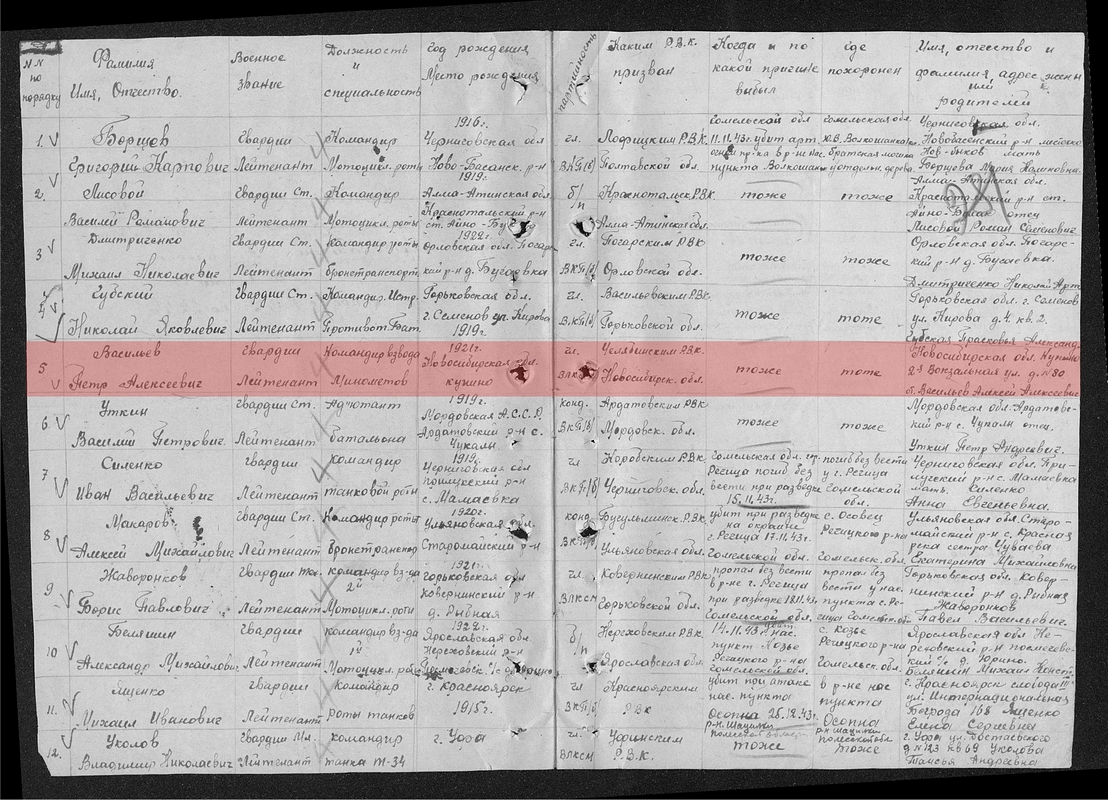 N N по порядку
Фамилия Имя, Отчество.
Военное звание
Должность и специальность
Год рождения Место рождения
партийность
Каким Р.В.К. призван
Когда и по какой причине выбыл
где похоронен
Имя, отчество и фамилия, адрес жены или родителей
1. Борщов Григорий Карпович
Гвардии Лейтенант
Командир Мотоцикл. роты
1916г. Черниговской обл. Ново-Басанск. р-н
чл. ВКП(б)
Лофицким Р.В.К. Полтавской обл.
Гомельской обл. 11.11.43г. убит арт. в р-н нас. пункта Волкошанка
Гомельская обл. Братская могила
Черниговская обл. Нов-Быков мать Борщева Мария Калиновна
2. Лисовой Василий Романович
Гвардии Ст. Лейтенант
Командир Мотоцикл. роты
1919г. Алма-Атинская обл. Краснотальский р-н
б/п
Краснотальск Р.В.К. Алма-Атинская обл.
тоже
тоже
Алма-Атинская обл. р-н ст. отец Лисовой Роман Семенович
3 Дмитриченко Михаил Николаевич
Гвардии Ст. Лейтенант
Командир роты бронетранспорт
1922г. Орловская обл. Погарский р-н д. Бугаевка
чл. ВКП(б)
Погарским РВК Орловской обл.
тоже
тоже
Орловская обл. Погарский р-н д. Бугаевка. Дмитриченко Николай Арт
4 Губский Николай Яковлевич
Гвардии Ст. Лейтенант
Командир. Истр. Противот. Бат.
Горьковская обл. г. Семенов ул. Кирова 1919г.
чл. ВКП(б)
Васильевским РВК. Горьковской обл.
тоже
тоте
Горьковская обл. г. Семенов ул. Кирова д. 4 кв. 2. Губская Прасковья
5 Васильев Петр Алексеевич
гвардии Лейтенант
Командир взвода Минометов
1921г. Новосибирская обл. купино
чл.
Челябинским РВК. Новосибирск. обл.
тоже
тоте
Новосибирская обл. Купино 2я Вокзальная ул. д. №80 Васильев Алексей Алексеевич
6 Уткин Василий Петрович
гвардии Ст. Лейтенант
Адъютант батальона
1919г. Мордовская А.С.С.Р. Ардатовский р-н с. Чукалы
конд. ВКП(б)
Ардатовским РВК Мордовск. обл.
тоже
тоже
Мордовская обл. Ардатовский р-н с. Чукалы отец. Уткин Петр Андреевич.
7 Силенко Иван Васильевич
гвардии Лейтенант
командир танковой роты
1919г. Черниговская обл Прилукский р-н с. Мамаевка
чл ВКП(б)
Коробским Р.В.К. Черниговск. обл.
Гомельской обл. гор. Речица погиб без вести при разведке 15.11.43г.
погиб без вести у г. Речица Гомельской обл.
Черниговская обл. Прилукский р-н с. Мамаевка мать. Силенко Анна Евгеньевна.
8 Макаров Алексей Михайлович
Гвардии Ст. Лейтенант
Командир роты
1920г. Ульяновская обл. Старомайский р-н
конд.
Бугульминск. Р.В.К. Ульяновской обл.
убит при разведке на окраине г Речица 17.11.43г. Гомельской обл.
с. Осовец Речицкого р-на Гомельск. обл.
Ульяновская обл. Старомайский р-н с. Красная река сестра Чуваева Екатерина Михайловна
9 Жаворонков Борис Павлович
Гвардии Лейтенант
командир вз-да Мотоцикл. роты
1921г. Горьковская обл Ковернинский р-н д. Рыбная
чл. ВЛКСМ
Ковернинским РВК Горьковской обл.
пропал без вести в р-не г. Речица при разведке 18.11.43г. Гомельской обл.
пропал без вести у нас. пункта г. Речица Гомельск. об
Горьковская обл. Ковернинский р-н д. Рыбная Жаворонков Павел Васильевич.
10 Белянин Александр Михайлович
Гвардии Лейтенант
командир вз-да Мотоцикл. роты
1922г. Ярославская обл. Нереховский р-н
б/п
Нереховским РВК. Ярославская обл.
14.11.43г. нас. пункт Козье Речицкого р-на Гомельской обл.
с. Козье Речицкого р-на Гомельск. об.
Ярославская обл Нереховский р-н с/с д. Юрино. Белянин Михаил Конст
11. Ященко Михаил Иванович
Гвардии Лейтенант
командир роты танков
г. красноярск 1915г.
чл ВКП(б)
Красноярским РВК
убит при атаке нас. пункта Осопна 25.12.43г.
в р-не нас пункта Осопна
г. Красноярск слобода III ул. Интернациональная 168 Ященко Елена Сергеевна
12. Уколов Владимир Николаевич
Гвардии Мл. Лейтенант
командир танка Т-34
г. Уфа
чл ВЛКСМ
Уфимским Р.В.К.
тоже
тоже
г. Уфа ул. Достаевского д №123 кв 69 Уколова Таисья Андреевна